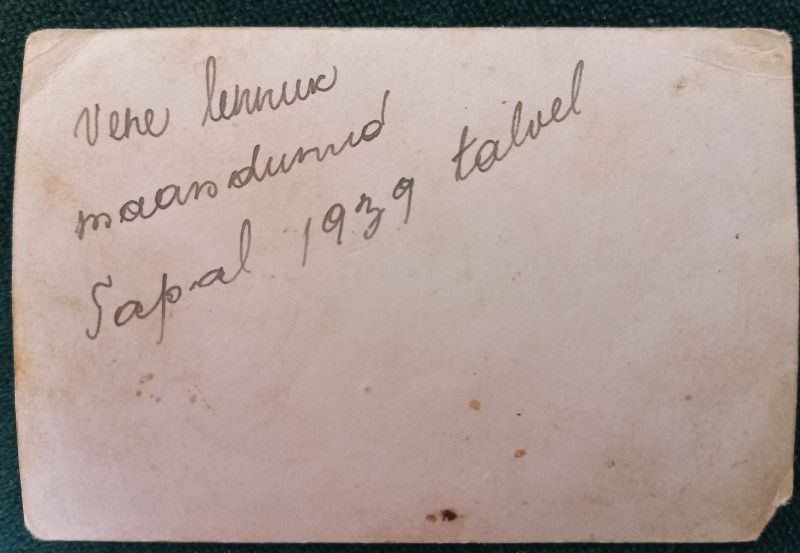 Vene lennuk
maandunud
Tapal 1939 talvel